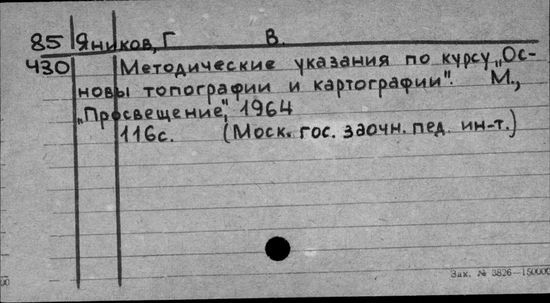 85 Яников, Г В.
430 Методические указания по курсу „Ос-
новы топографии и картографии". М.,
„Просвещение", 1964
116с. (Моск. гос. заочн. пед. ин-т.)
Зак. № 3826—150000
00